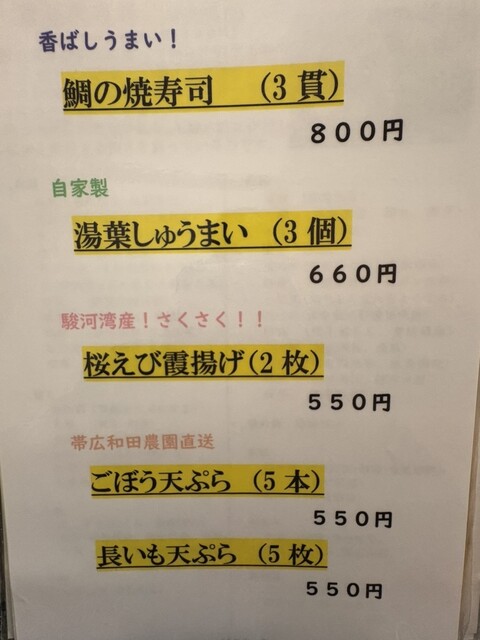 香ばしうまい！
鯛の焼寿司　（３貫）
８００円
自家製
湯葉しゅうまい　（３個）
６６０円
駿河湾産！さくさく！！
桜えび霞揚げ（２枚）
５５０円
帯広和田農園直送
ごぼう天ぷら　（５本）
５５０円
長いも天ぷら　（５枚）
５５０円